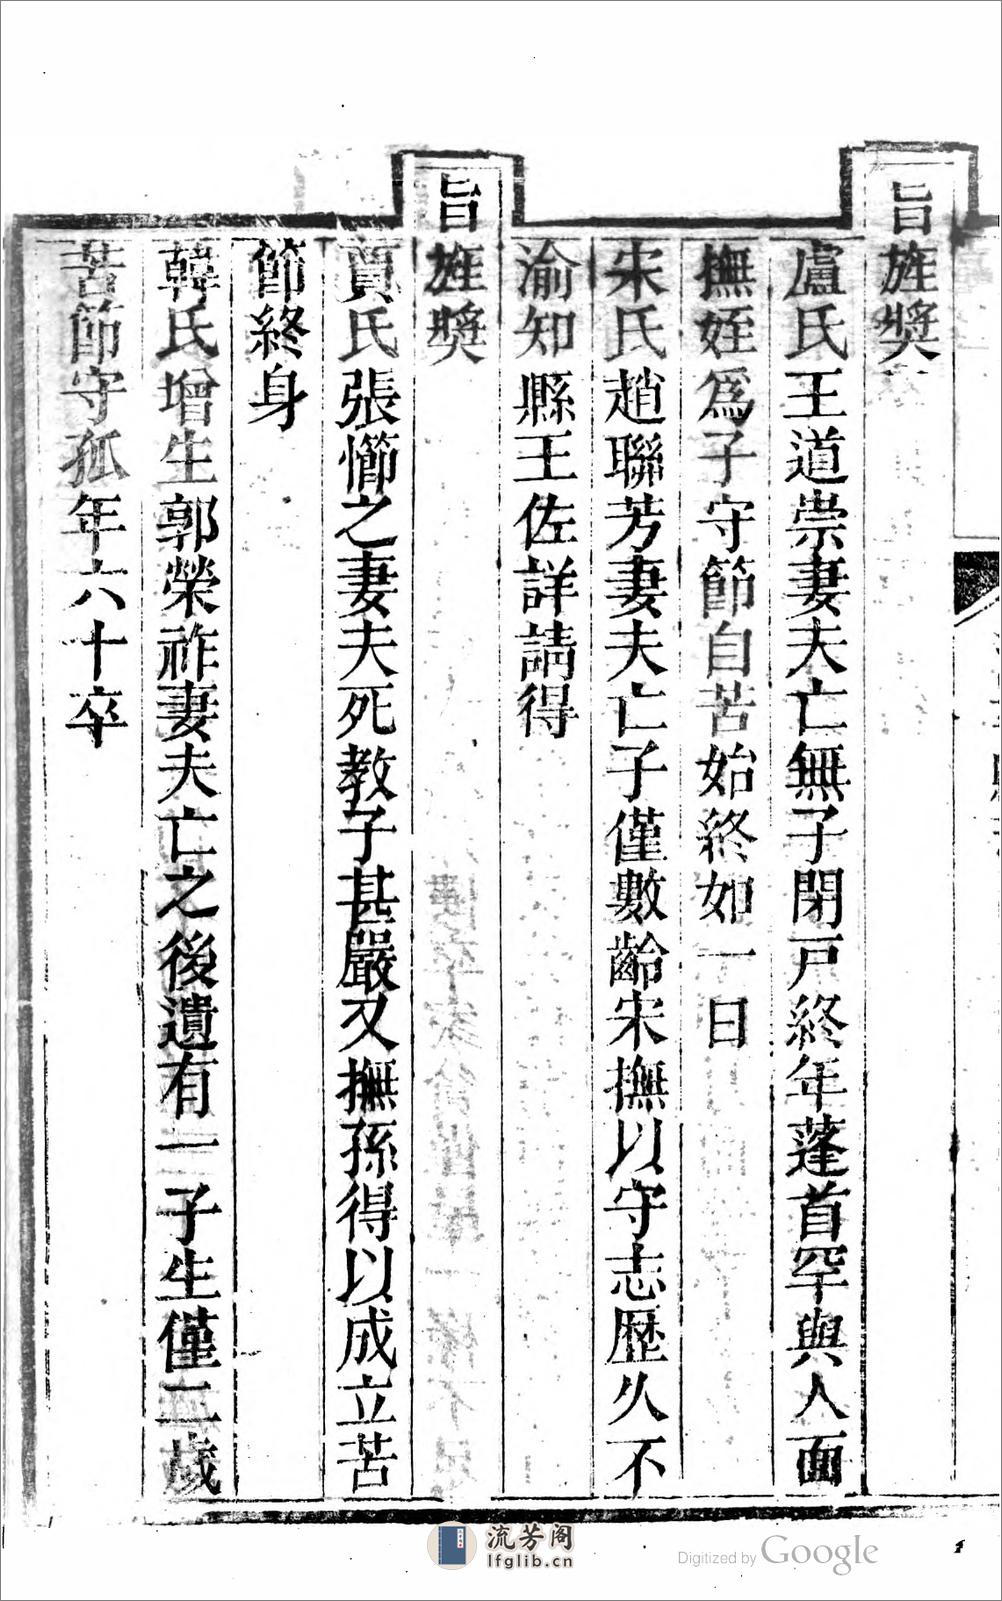 旨旌奬
盧氏王道崇妻夫亡無子閉戸終年蓬首罕與人面
撫姪爲子守節自苦始終如一日
宋氏趙聯芳妻夫亡子僅數齡宋撫以守志歴久不
渝知縣王佐詳請得
旨旌奬
賈氏張㦂之妻夫死教子甚嚴又撫孫得以成立苦
節終身
韓氏增生郭榮祚妻夫亡之後遺有一子生僅二歲
苦節守孤年六十卒
流芳阁
lfglib.cn
Digitized by Google